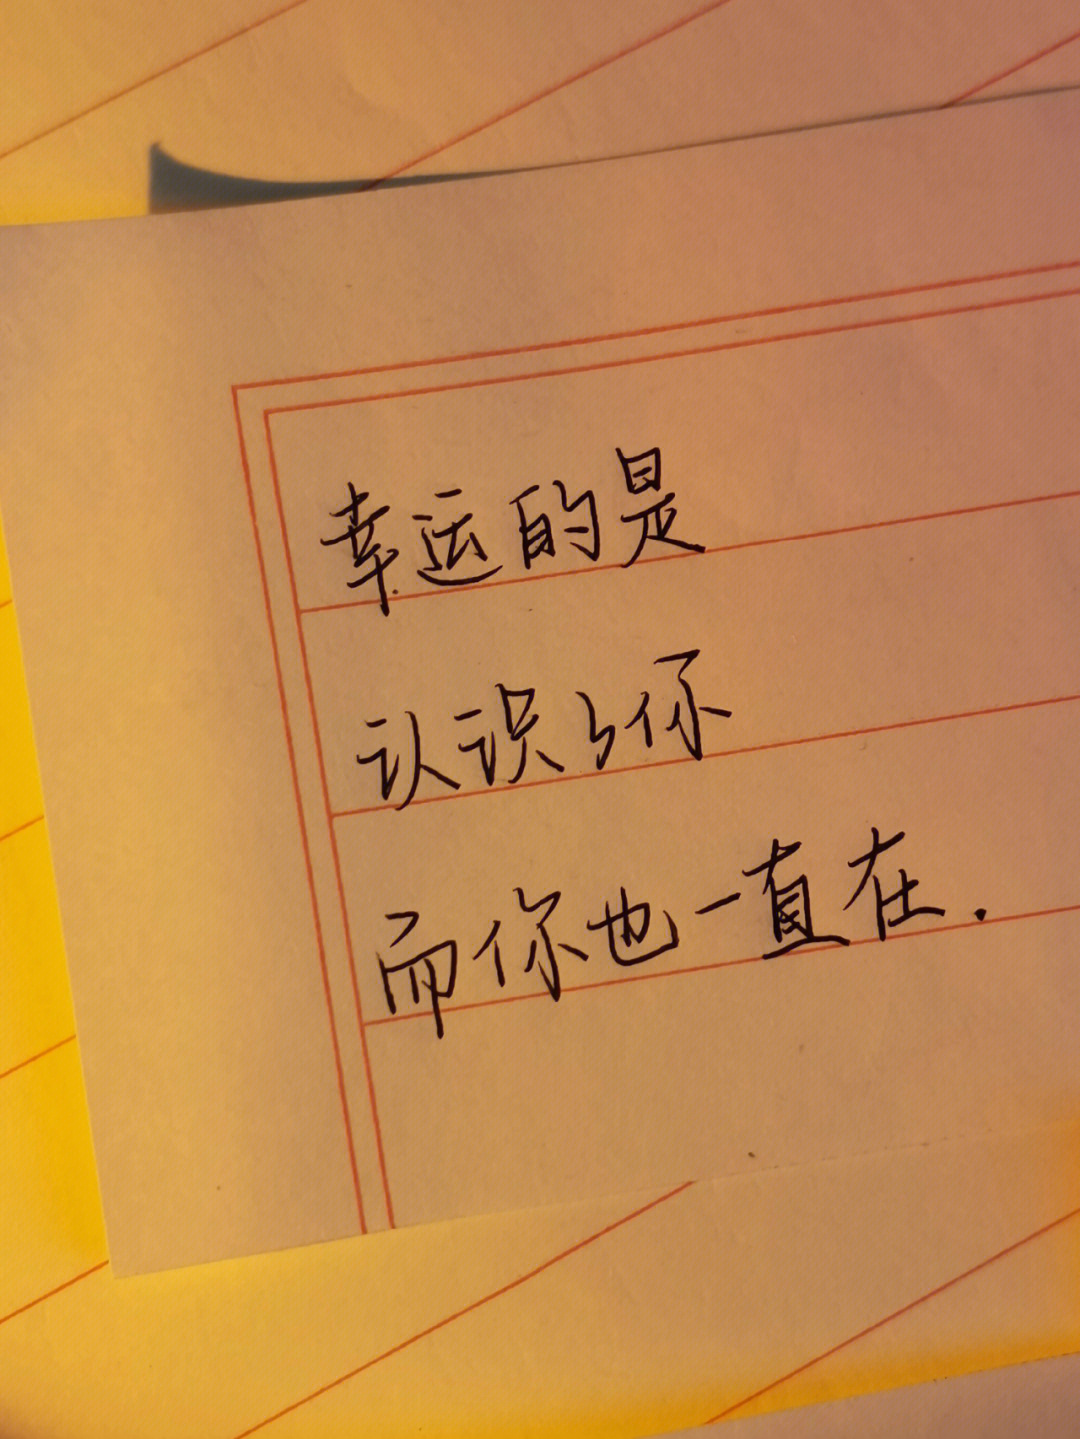 幸运的是
认识了你
而你也一直在.